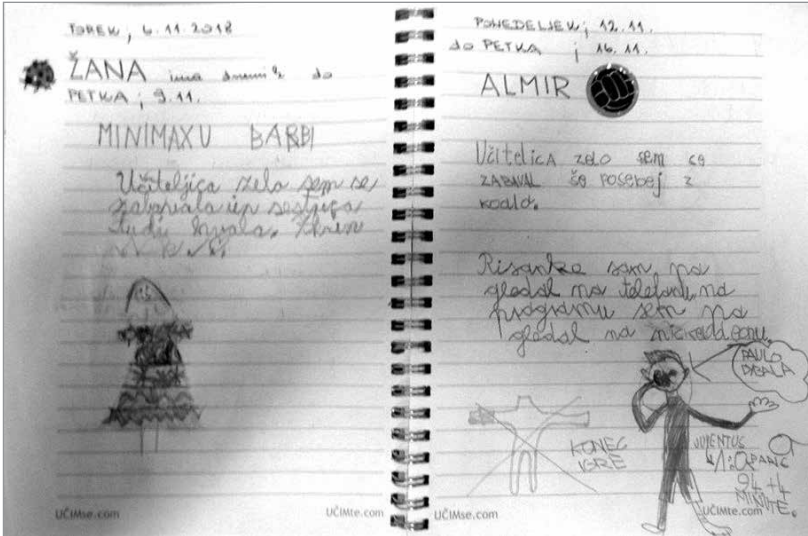 TOREK, 6.11.2018
ŽANA ima dnevnik do
PETKA, 9.11.
MINIMAXU BARBI
Učiteljica zelo sem se
zabavala in sestrica
tudi hvala.
UČIMse.com
PONEDELJEK, 12.11.
do PETKA, 16.11.
ALMIR
Učitelica zelo sem se
ZABAVAL še posebej z
koalo.
Risanke sam po
gledal na telefonu, na
programu sem po
gledal na
PAULO
DYBALA
KONEC
IGRE
JUVENTUS
94+4
MINUTE.
UČIMte.com